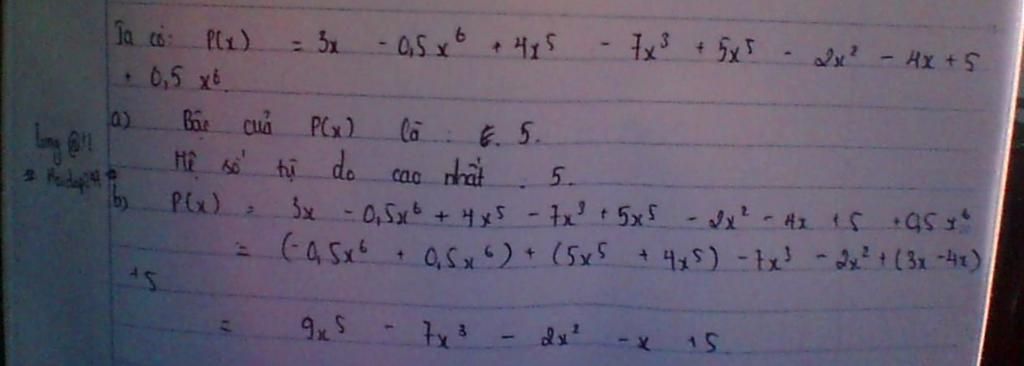 Ta có: P(x) = 3x - 0,5x⁶ + 4x⁵ - 7x³ + 5x⁵ - 2x² - 4x + 5
+ 0,5 x⁶.
a) Bậc của P(x) là : 5.
Hệ số tự do cao nhất : 5.
b) P(x) = 3x - 0,5x⁶ + 4x⁵ - 7x³ + 5x⁵ - 2x² - 4x + 5 + 0,5 x⁶
= (-0,5x⁶ + 0,5x⁶) + (5x⁵ + 4x⁵) - 7x³ - 2x² + (3x - 4x)
+5
= 9x⁵ - 7x³ - 2x² - x + 5